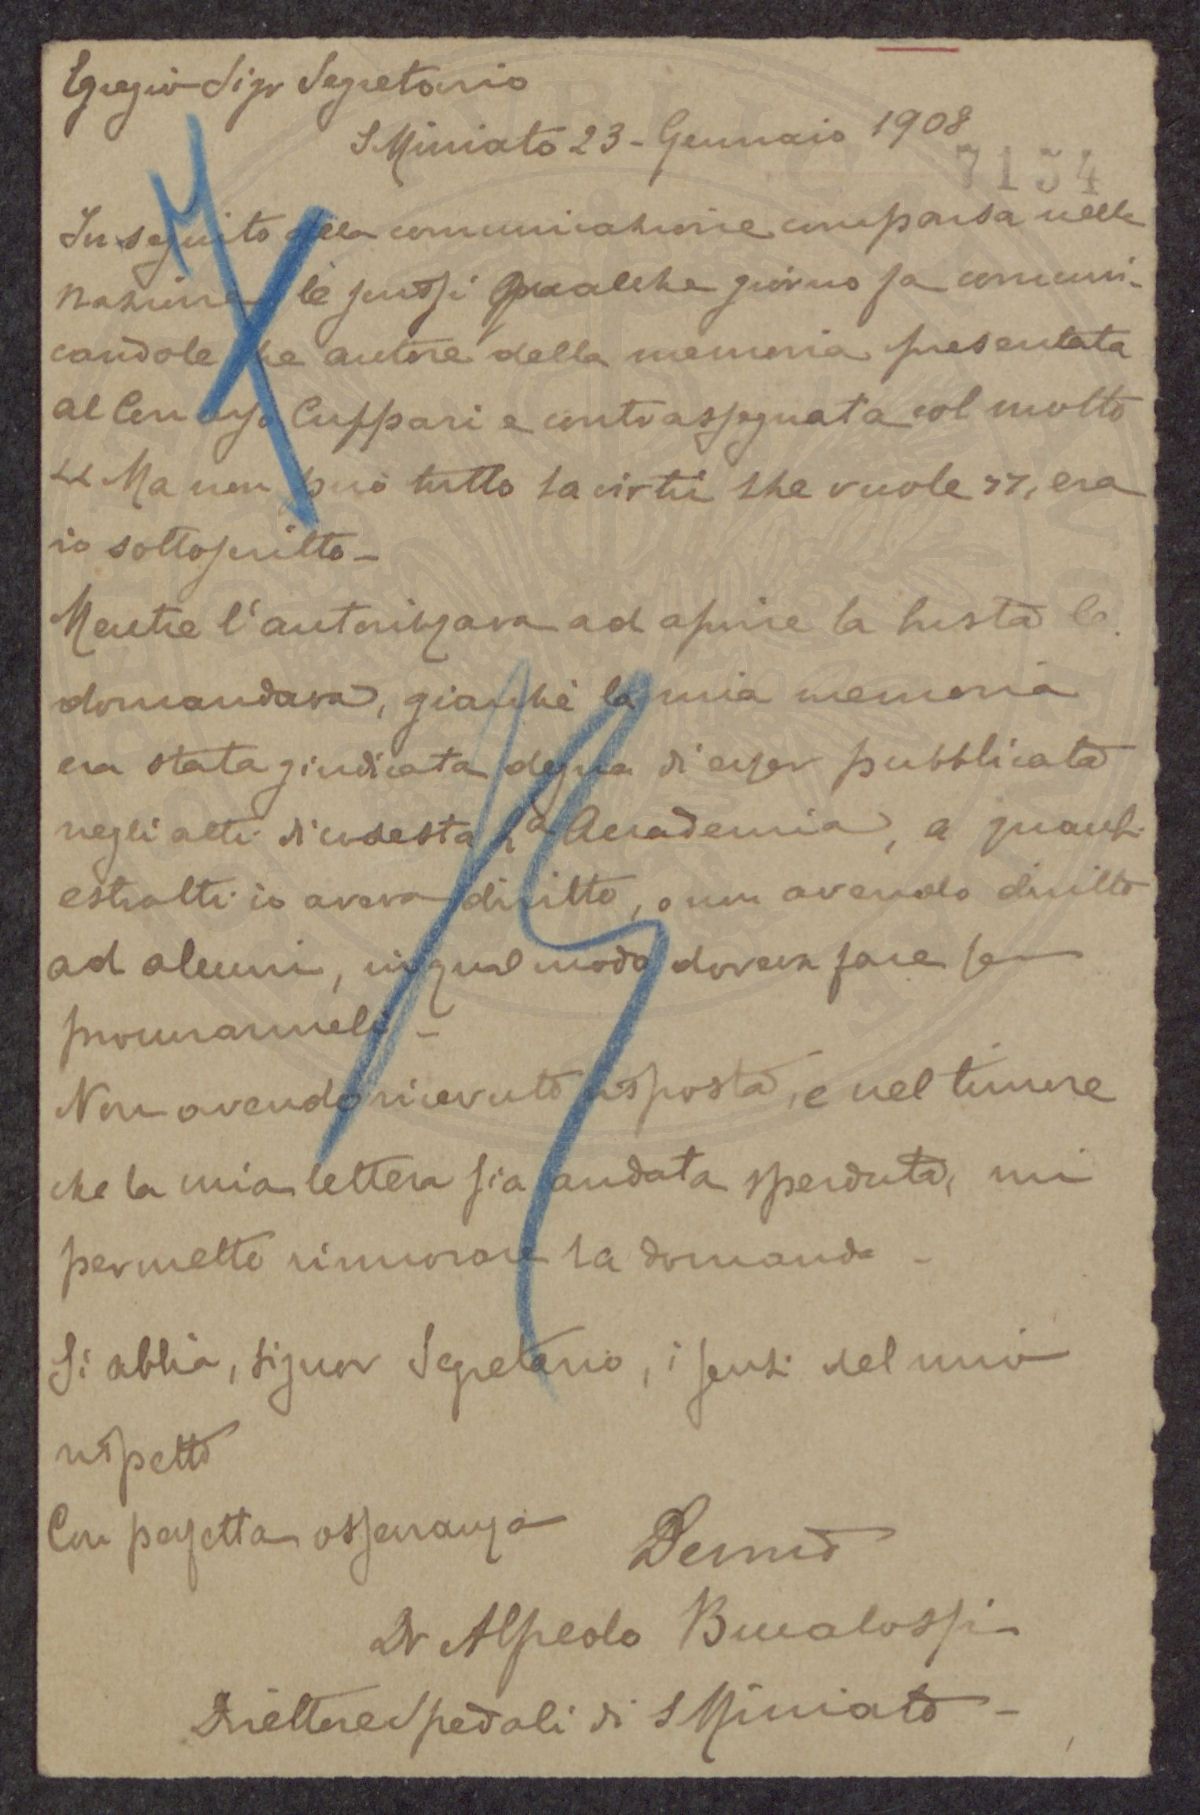 Egregio Sigr Segretario
S Miniato 23 - Gennaio 1908
7154
In seguito della comunicazione comparsa nella
Nazione le scrissi qualche giorno fa comuni-
candole che autore della memoria presentata
al Concorso Cuppari e contrassegnata col motto
"Ma non può tutto la virtù che vuole", era
io sottoscritto -
Mentre l'autorizzava ad aprire la busta le
domandava, giacchè la mia memoria
era stata giudicata degna di esser pubblicata
negli atti di codesta Accademia, a quanti
estratti io aveva diritto, o non avendo diritto
ad alcuni, in qual modo doveva fare per
procurarmeli -
Non avendo ricevuto risposta, e nel timore
che la mia lettera sia andata sperduta, mi
permetto rinnovare la domanda -
Si abbia, Signor Segretario, i sensi del mio
rispetto
Con perfetta osservanza
Devmo
Dr Alfredo Bucalossi
Direttore Spedali di S Miniato -